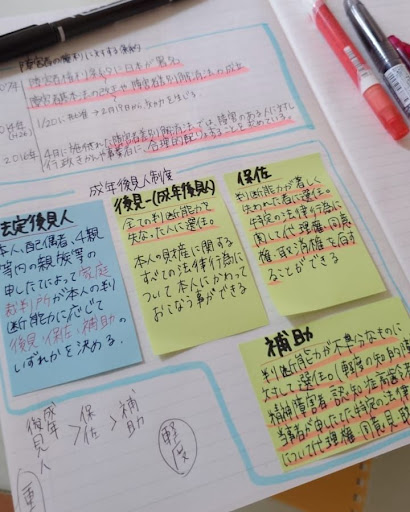 障害者の権利に対する条約
障害者権利条約に日本が署名
障害者基本法の改正や障害者差別解消法の成立
1/20に批准→2月19日から効力を生じる
2016年 4月に施行した障害者差別解消法では障害のある人に対し
行政きかんや事業者に、合理的配りょをすることを求めている。
成年後見人制度
法定後見人
本人、配偶者、4親
等内の親族等の
申したてによって家庭
裁判所が本人の判
断能力に応じて
後見・保佐・補助の
いずれかを決める。
後見-(成年後見人)
全ての判断能力を
失なった人に選任。
本人の財産に関する
すべての法律行為に
ついて本人にかわって
おこなう事ができる
保佐
判断能力が著しく
失われた者に選任。
特定の法律行為に
関して代理権・同意
権・取り消権を有す
ることができる
補助
判断能力が不十分なものに
対して選任。(軽度の知的障
精神障害者、認知症高齢者
事者が申したてた特定の法律
について代理権・同意見
成年後見人 > 保佐 > 補助
重
軽度